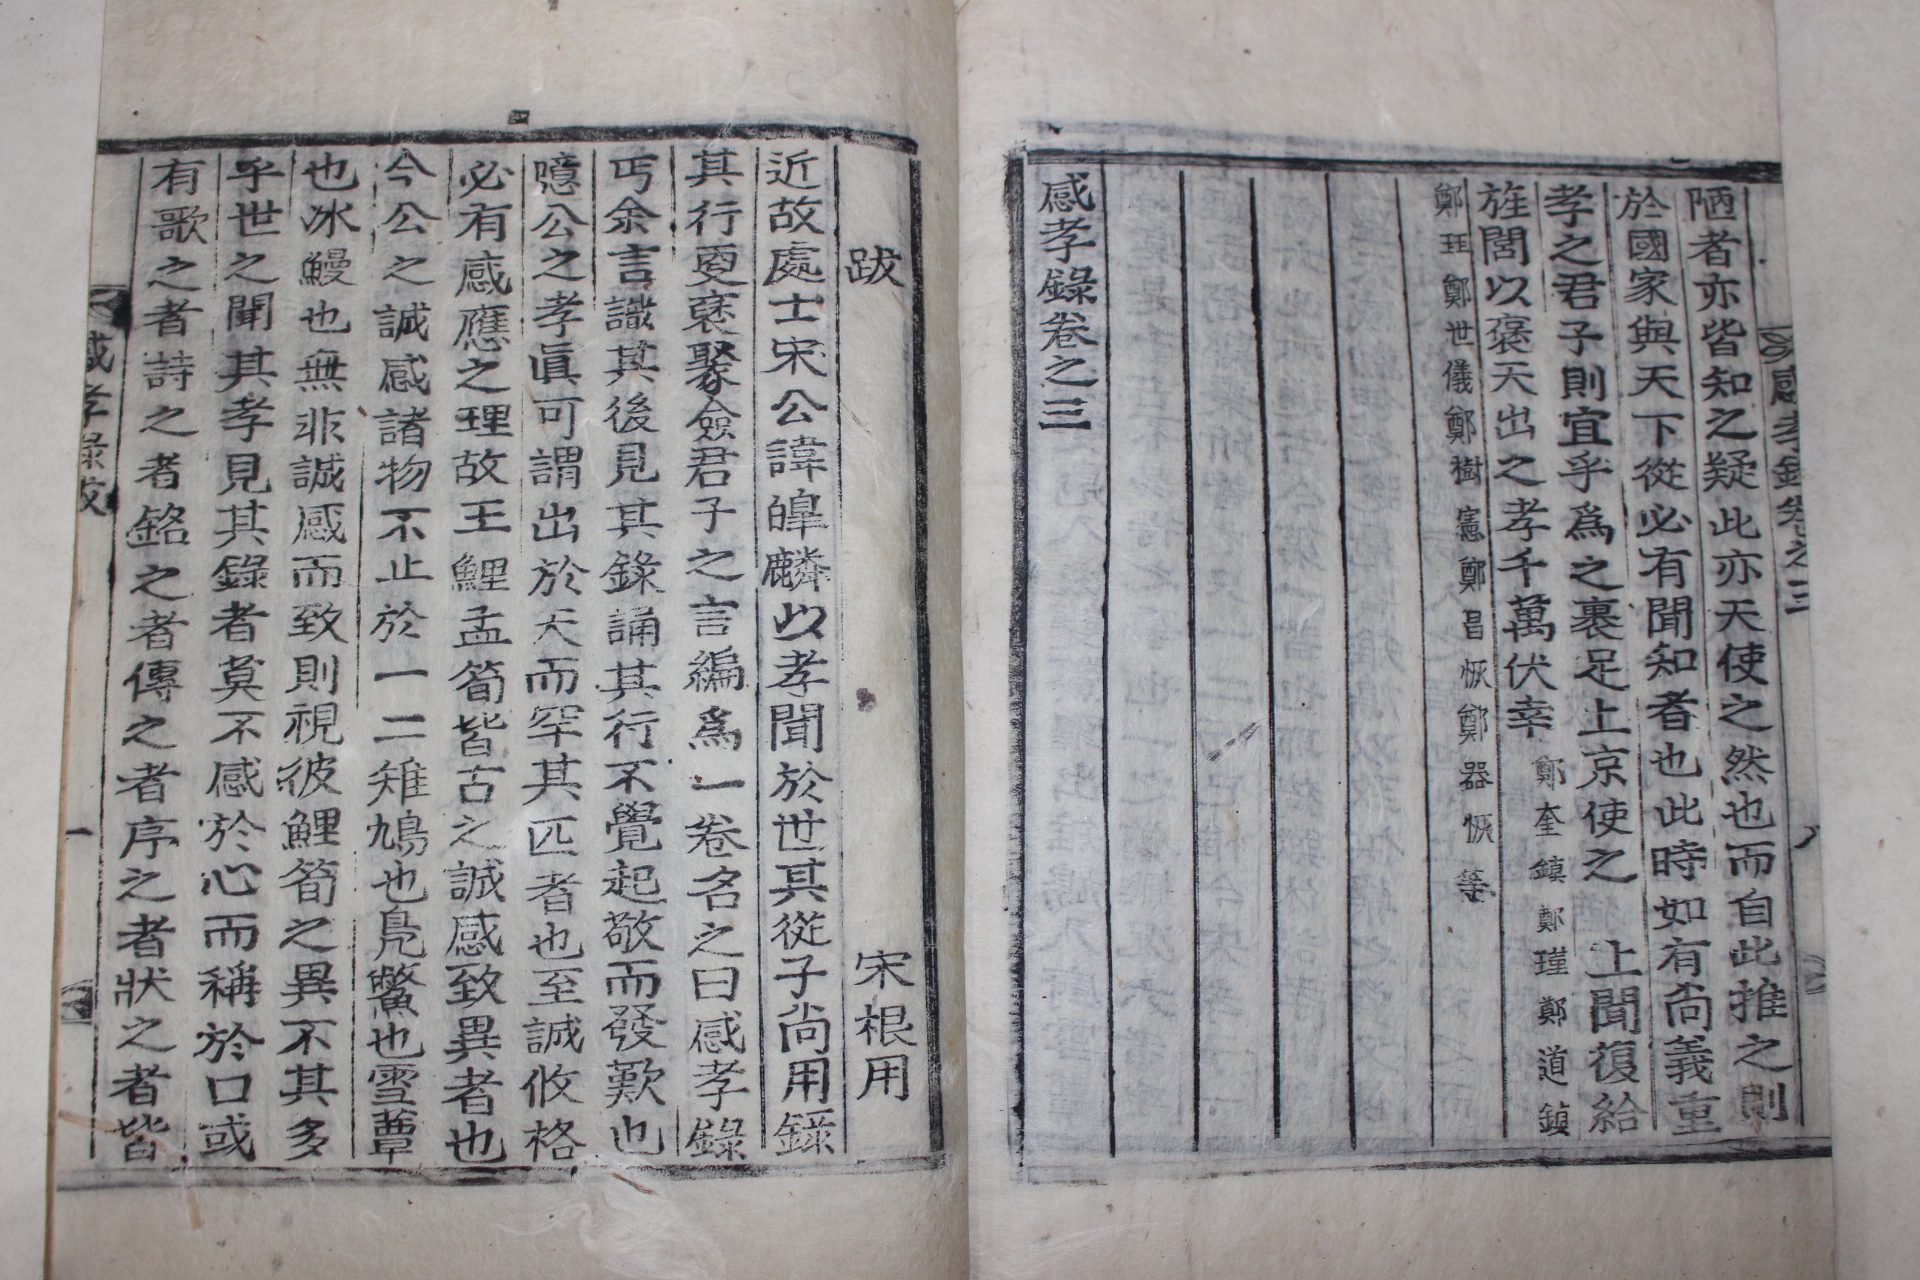 陋者亦皆知之疑此亦天使之然也而自此推之則
於國家與天下從必有聞知者也此時如有尙義重
孝之君子則宜乎爲之裹足上京使之 上聞復給
旌閭以褒天出之孝千萬伏幸 鄭奎鎭 鄭瑾 鄭道鎮
鄭珏 鄭世儀 鄭樹憲 鄭昌恢 鄭器恢 等
感孝錄卷之三
感孝錄卷之三
八
跋 宋根用
近故處士宋公諱皥麟以孝聞於世其從子尙用錄
其行更裒聚僉君子之言編爲一卷名之曰感孝錄
丐余言識其後見其錄誦其行不覺起敬而發歎也
噫公之孝眞可謂出於天而罕其匹者也至誠攸格
必有感應之理故王鯉孟筍皆古之誠感致異者也
今公之誠感諸物不止於一二雉鳩也鳧鱉也雪蕈
也冰鰻也無非誠感而致則視彼鯉筍之異不其多
乎世之聞其孝見其錄者莫不感於心而稱於口或
有歌之者詩之者銘之者傳之者序之者狀之者皆
感孝錄跋
一